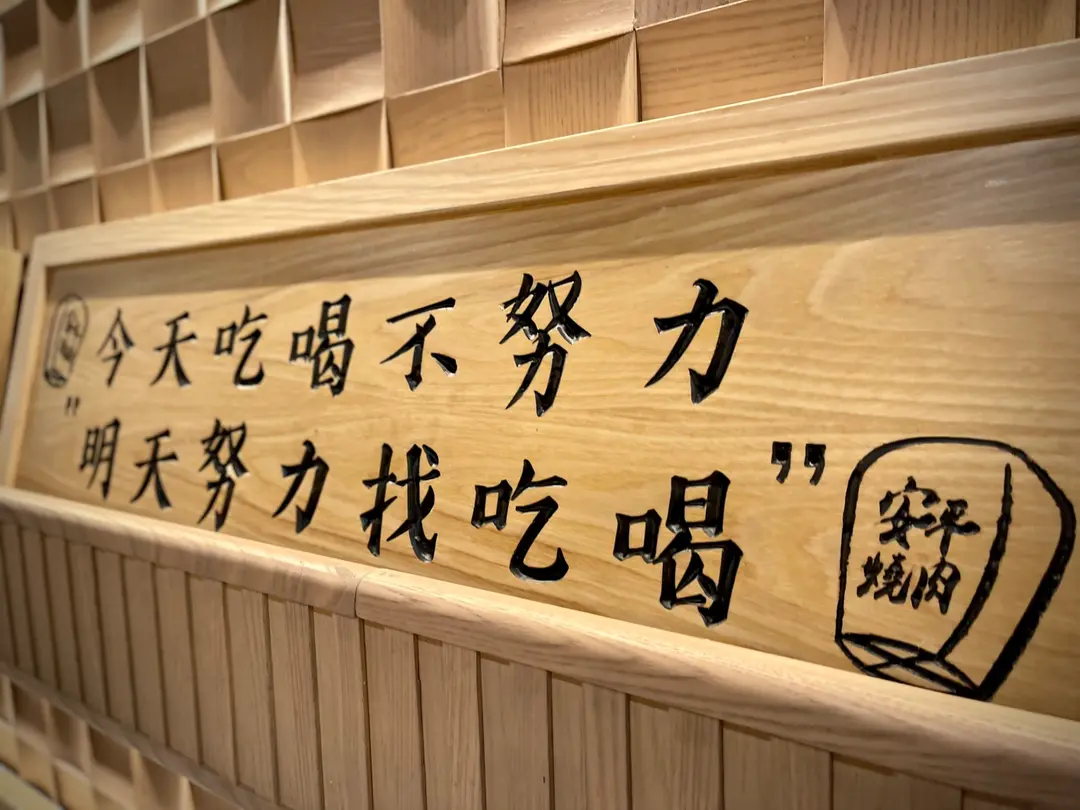 今天吃喝不努力
"明天努力找吃喝"
安平
燒肉